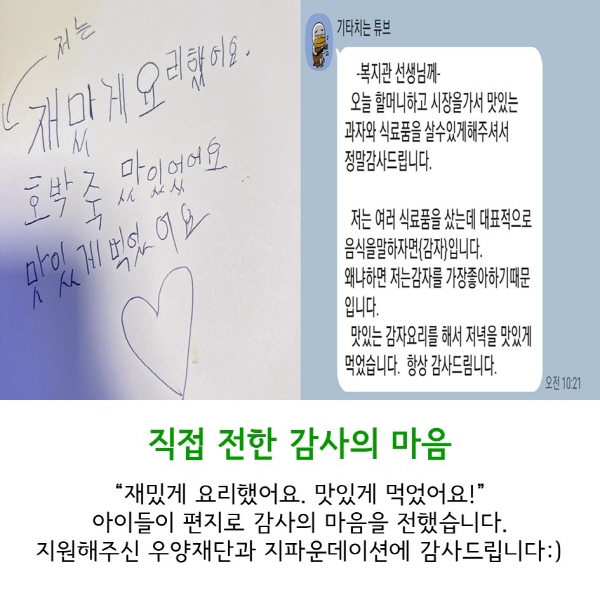 저는
재밌게 요리했어요.
호박죽 맛있었어요
맛있게 먹었어요
기타치는 튜브
-복지관 선생님께-
오늘 할머니하고 시장을가서 맛있는
과자와 식료품을 살수있게해주셔서
정말감사드립니다.
저는 여러 식료품을 샀는데 대표적으로
음식을말하자면{감자}입니다.
왜냐하면 저는감자를 가장좋아하기때문
입니다.
맛있는 감자요리를 해서 저녁을 맛있게
먹었습니다. 항상 감사드림니다.
오전 10:21
직접 전한 감사의 마음
“재밌게 요리했어요. 맛있게 먹었어요!”
아이들이 편지로 감사의 마음을 전했습니다.
지원해주신 우양재단과 지파운데이션에 감사드립니다:)